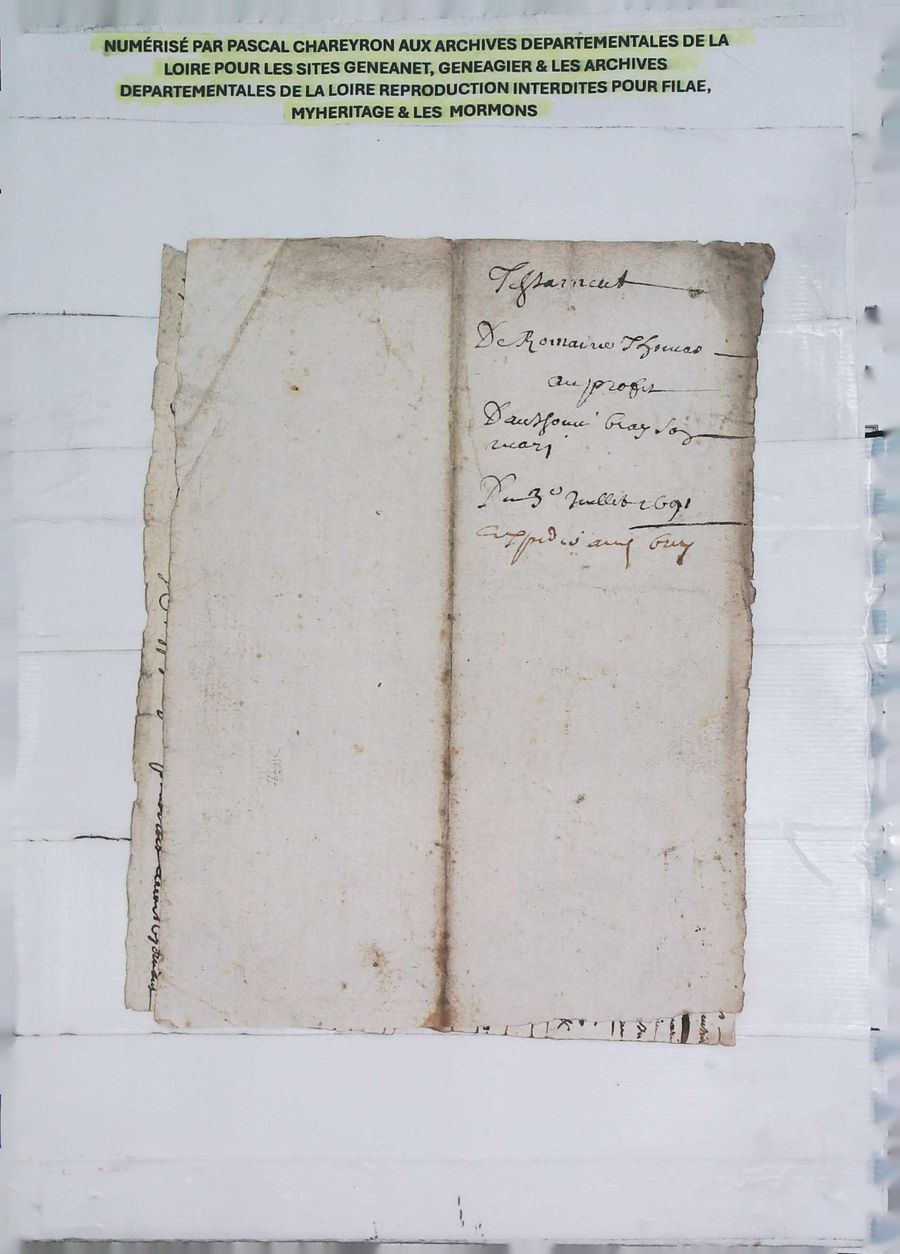 NUMÉRISÉ PAR PASCAL CHAREYRON AUX ARCHIVES DEPARTEMENTALES DE LA
LOIRE POUR LES SITES GENEANET, GENEAGIER & LES ARCHIVES
DEPARTEMENTALES DE LA LOIRE REPRODUCTION INTERDITES POUR FILAE,
MYHERITAGE & LES MORMONS
Testament
De Romaine Thomas
au profit
D'anthoine
mari
Du 3e Juillet 1691